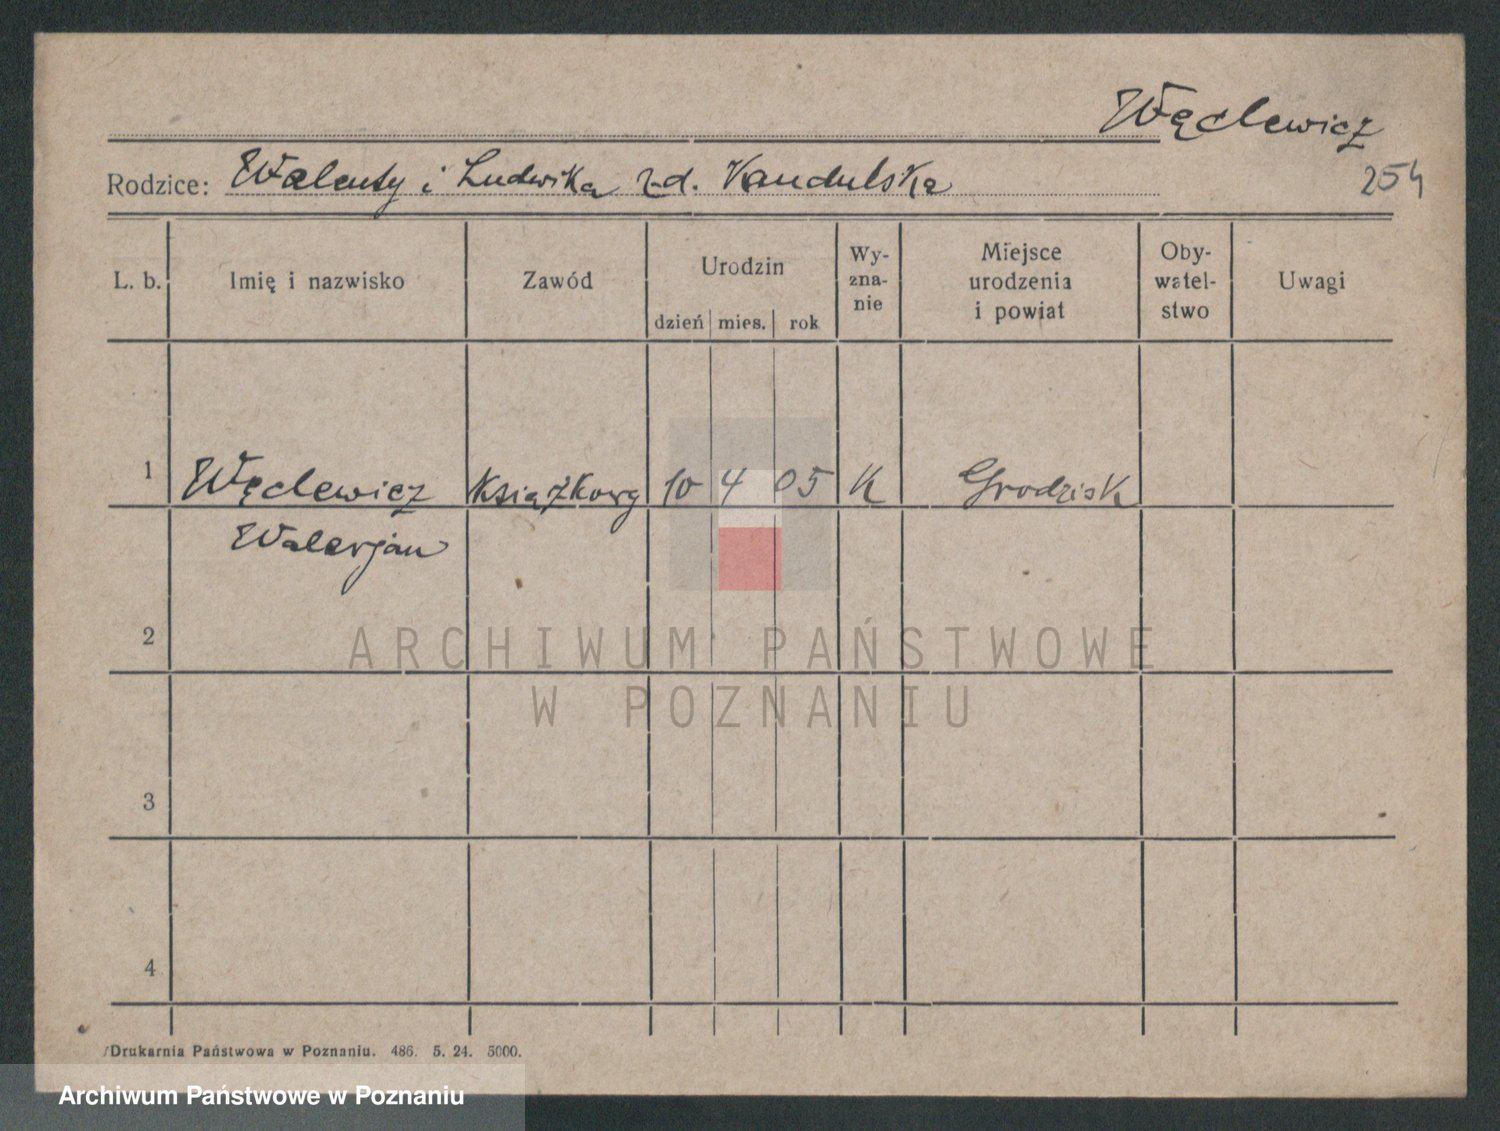 Węclewicz
Rodzice: Walenty i Ludwika z d. Kandulska
254
L. b. Imię i nazwisko Zawód Urodzin dzień mies. rok Wy-zna-nie Miejsce urodzenia i powiat Oby-watel-stwo Uwagi
1 Węclewicz Książkowy 10 4 05 K Grodzisk
Walerjan
2
ARCHIWUM PAŃSTWOWE
W POZNANIU
3
4
Drukarnia Państwowa w Poznaniu. 486. 5. 24. 5000.
Archiwum Państwowe w Poznaniu